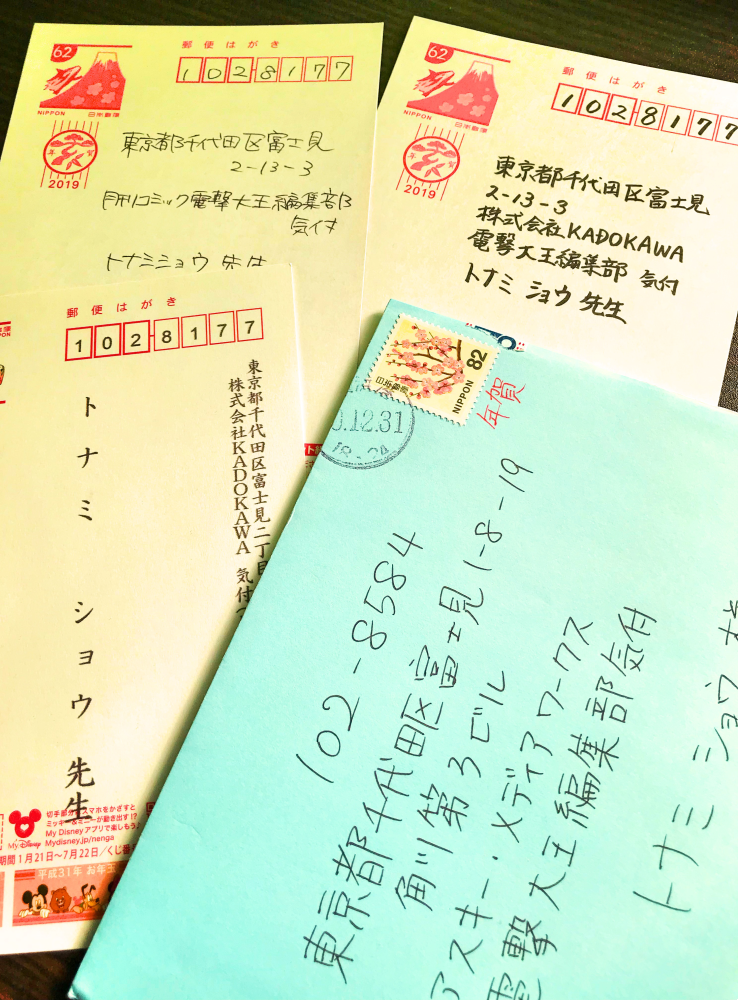 62
NIPPON 日本郵便
年賀
2019
郵便はがき
1028177
東京都千代田区富士見
2-13-3
月刊コミック電撃大王編集部
気付
トナミショウ先生
62
NIPPON 日本郵便
年賀
2019
郵便はがき
1028177
東京都千代田区富士見
2-13-3
株式会社KADOKAWA
電撃大王編集部 気付
トナミ ショウ 先生
郵便はがき
1028177
東京都千代田区富士見二丁目
株式会社KADOKAWA 気付
トナミ ショウ 先生
My Disney
切手部分をスマホをかざすと
ミッキー&ミニーが動き出す!?
My Disneyアプリで楽しもう
Mydisney.jp/nenga
期間1月21日~7月22日/くじ番
平成31年 お年玉
82
日本郵便
NIPPON
.12.31
18-24
年賀
102-8584
東京都千代田区富士見1-8-19
角川第3ビル
アスキー・メディアワークス
電撃大王編集部気付
トナミ ショウ 様